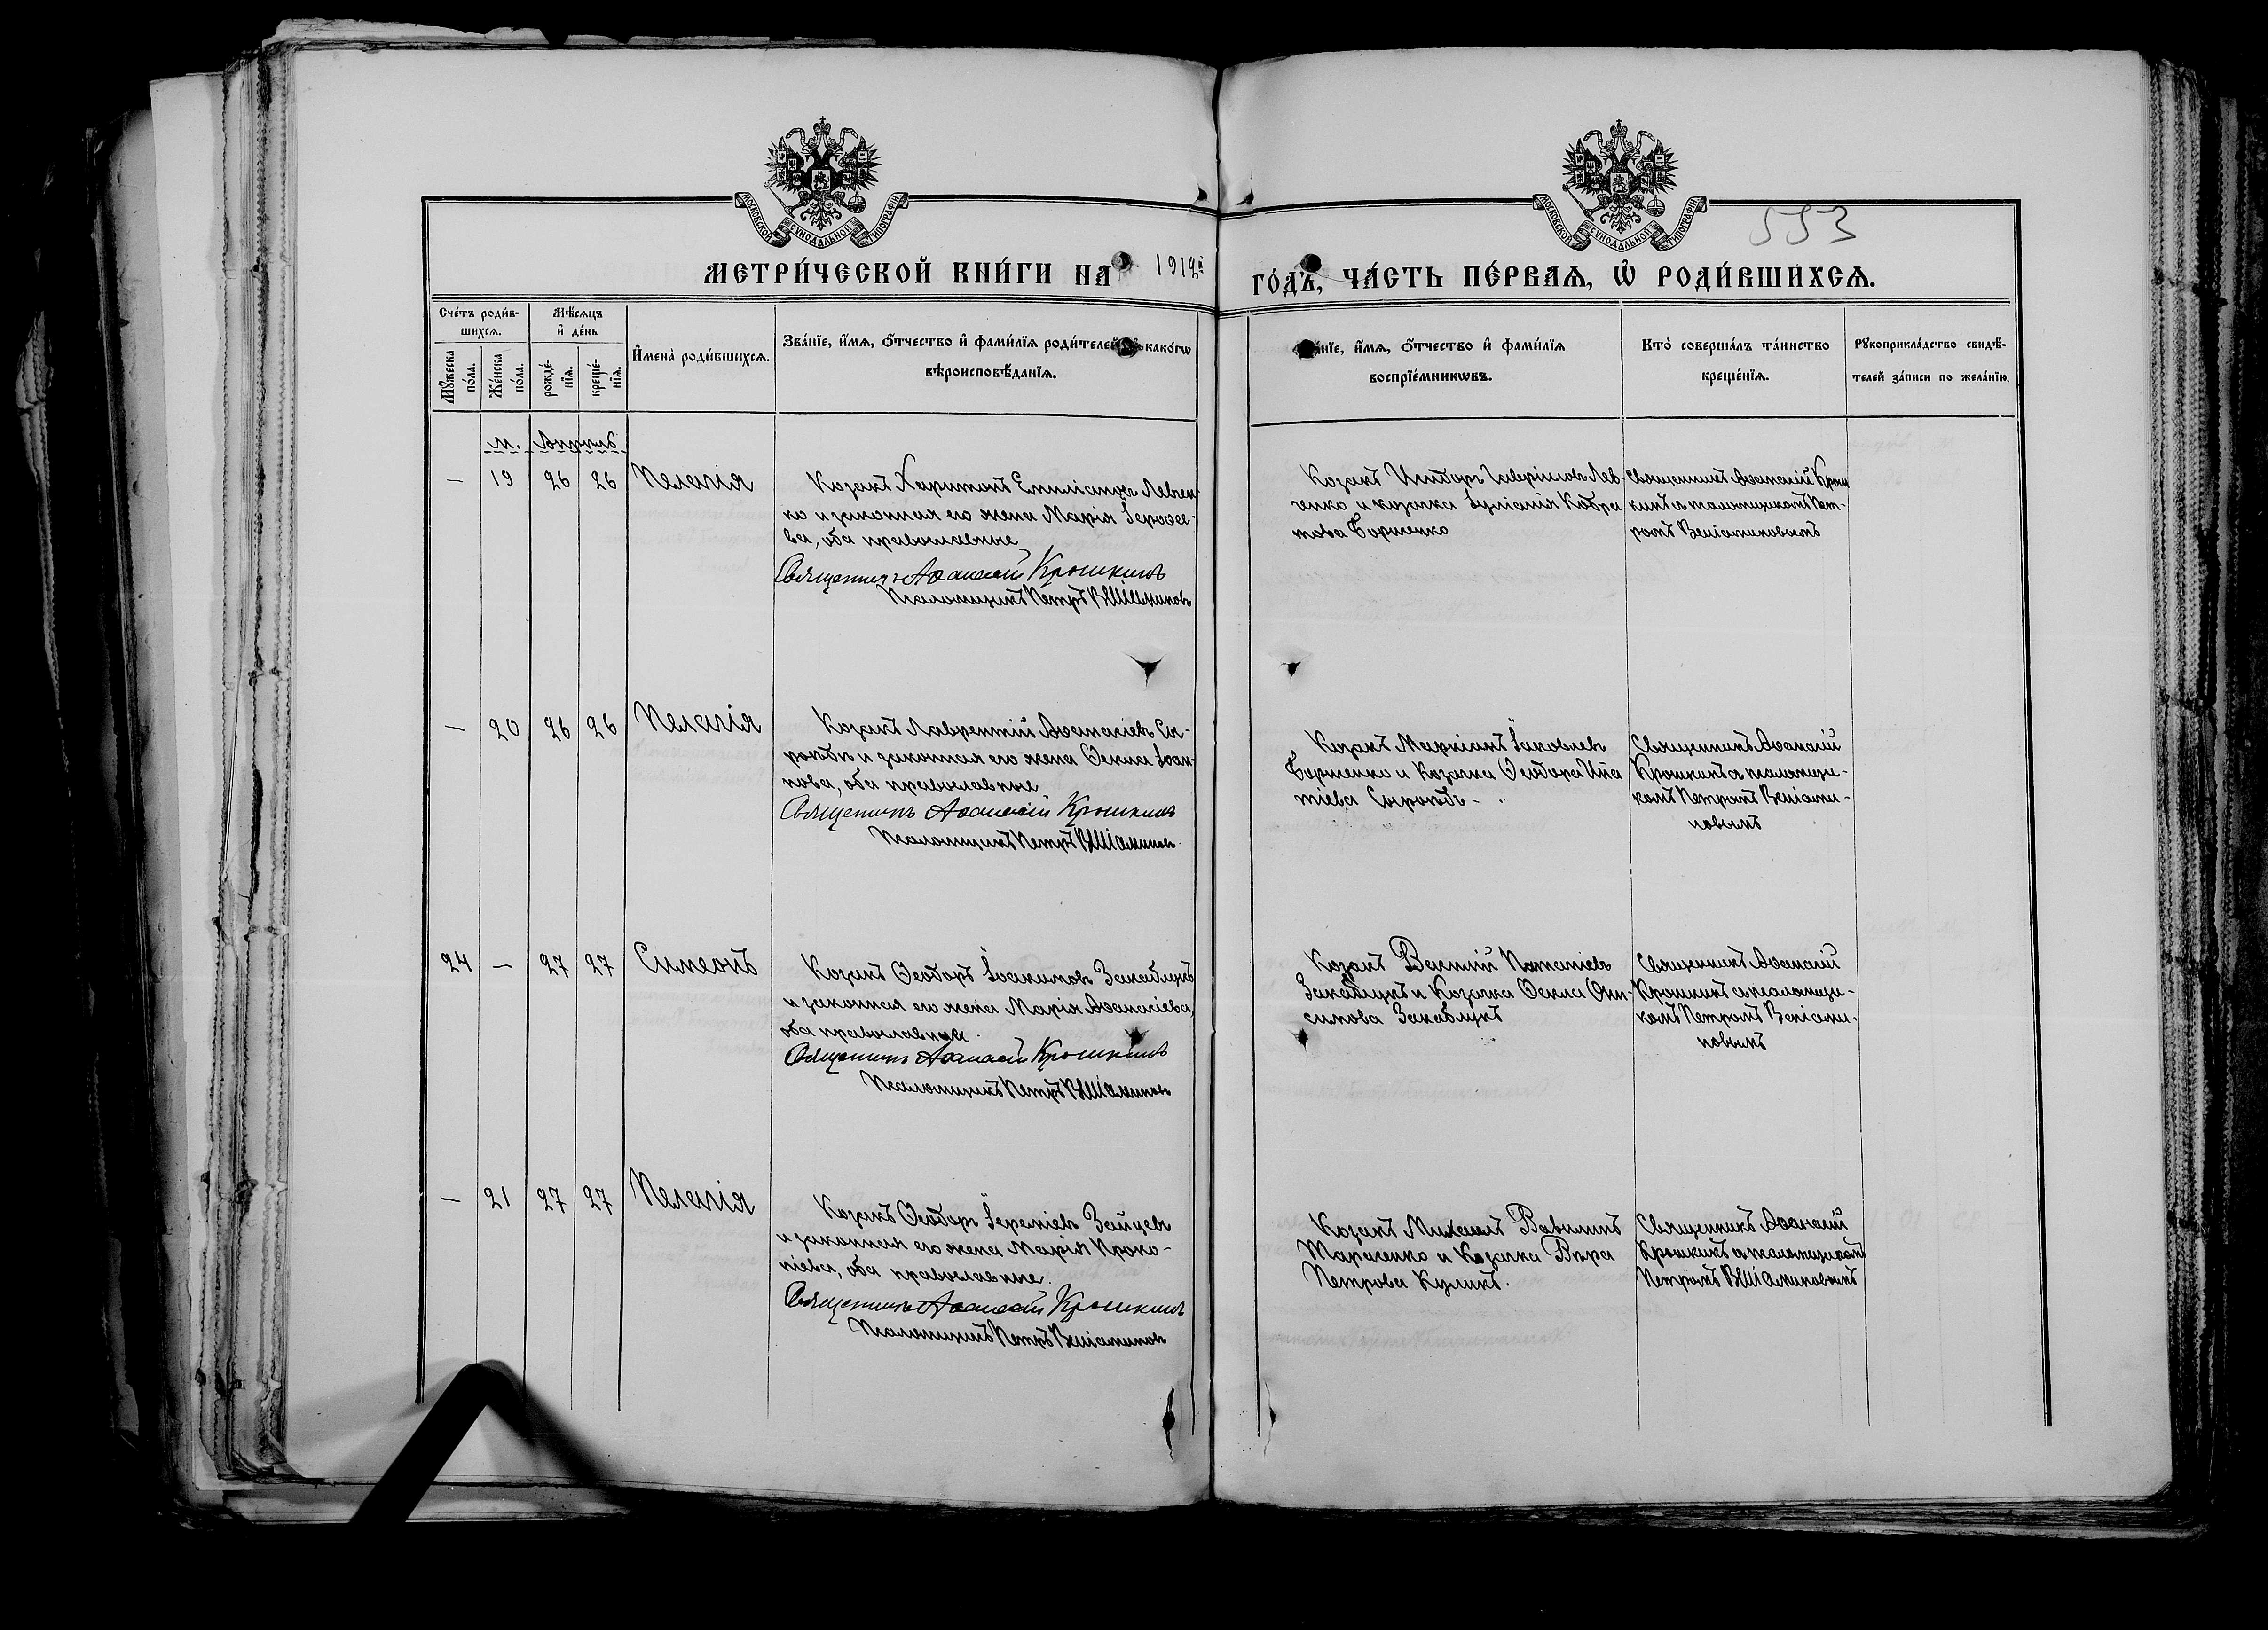 МОСКОВСКОЙ СѴНОДАЛЬНОЙ ТИПОГРАФІИ
МОСКОВСКОЙ СѴНОДАЛЬНОЙ ТИПОГРАФІИ
553
МЕТРИ́ЧЕСКОЙ КНИ́ГИ НА 1912й ГО́ДЪ, ЧА́СТЬ ПЕ́РВАѦ, Ѡ҆ РОДИ́ВШИХСѦ.
Сче́тъ роди́в-
шихсѧ.
Мѣ́сѧцъ
и҆ де́нь
Мꙋ́жеска
по́ла.
Же́нска
по́ла.
рожде́-
нїѧ.
креще́-
нїѧ.
И҆мена̀ роди́вшихсѧ.
Зва́нїе, и҆́мѧ, ѻ҆́тчество и҆ фами́лїѧ роди́телей како́гѡ
вѣроисповѣ́данїѧ.
и҆́мѧ, ѻ҆́тчество и҆ фами́лїѧ
воспрїе́мникѡвъ.
Кто̀ соверша́лъ та́инство
креще́нїѧ.
Рꙋкоприкла́дство свидѣ́-
телей за́писи по жела́нїю.
м. Апрѣль
— 19 26 26 Пелагія
Козакъ Харитонъ Емиліановъ Левчен-
ко и законная его жена Марія Іероѳее-
ва, оба православные
Священникъ Аѳанасій Крошкинъ
Псаломщикъ Петръ Веніаминовъ
Козакъ Исидоръ Гавріиловъ Лев-
ченко и козачка Іуліанія Кодра
това Борченко
Священникъ Аѳанасій Крош
кинъ съ псаломщикомъ Пет-
ромъ Веніаминовымъ
— 20 26 26 Пелагія
Козакъ Лаврентій Аѳанасіевъ Сы-
ротѣнъ и законная его жена Ѳекла Іоан-
нова, оба православные
Священникъ Аѳанасій Крошкинъ
Псаломщикъ Петръ Веніаминовъ
Козакъ Маркіанъ Іаковлевъ
Борченко и Козачка Ѳеодора Ипа
тіева
Священникъ Аѳанасій
Крошкинъ съ псаломщи-
комъ Петромъ Веніами-
новымъ
24 — 27 27 Симеонъ
Козакъ Ѳеодоръ Іоакимовъ Закаблукъ
и законная его жена Марія Аѳанасіева,
оба православные.
Священникъ Аѳанасій Крошкинъ
Псаломщикъ Петръ Веніаминовъ
Козакъ Василій Потапіевъ
Закаблукъ и Козачка Ѳекла Они-
симова Закаблукъ
Священникъ Аѳанасій
Крошкинъ съ псаломщи-
комъ Петромъ Веніами-
новымъ
— 21 27 27 Пелагія
Козакъ Ѳеодоръ Іереміевъ Зайцевъ
и законная его жена Марія Проко-
піева, оба православные.
Священникъ Аѳанасій Крошкинъ
Псаломщикъ Петръ Веніаминовъ
Козакъ Михаилъ Вавилинъ
Тарасенко и Козачка Вѣра
Петрова Куликъ.
Священникъ Аѳанасій
Крошкинъ съ псаломщикомъ
Петромъ Веніаминовымъ